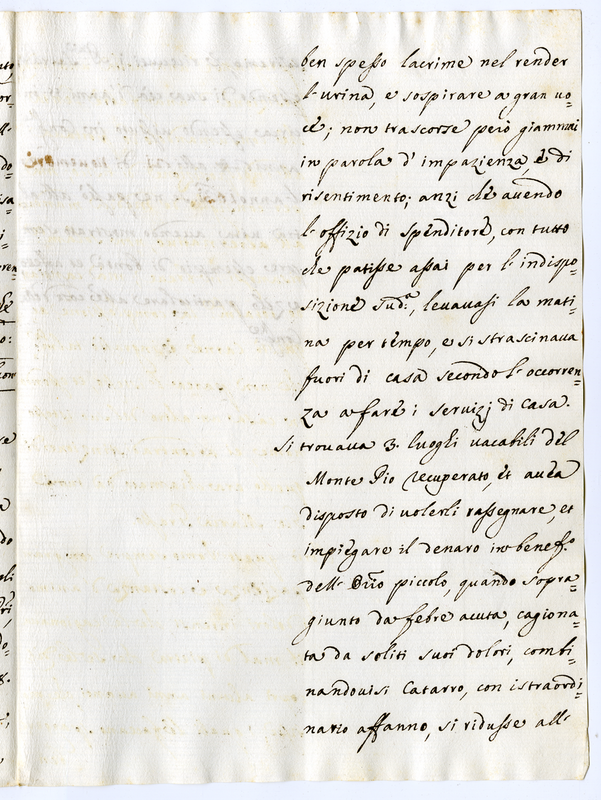 ben spesso lacrime nel render
l'urina, e sospirare a gran uo=
ce; non trascorse però giammai
in parola d'impazienza, è di
risentimento; anzi che auendo
l'offizio di spenditore, con tutto
che patisse assai per l'indispo=
sizione sud.ª, leuauasi la mati=
na per tempo, e si strascinaua
fuori di casa secondo l'occorren=
za a fare i seruizj di casa.
Si trouaua 3. luoghi uacabili del
Monte Pio recuperato, et auea
disposto di uolerli rassegnare, et
impiegare il denaro in benef.º
dell' Orrio piccolo, quando sopra=
giunto da febre acuta, cagiona=
ta da soliti suoi dolori, combi=
nandouisi Catarro, con istraordi=
nario affanno, si ridusse all'